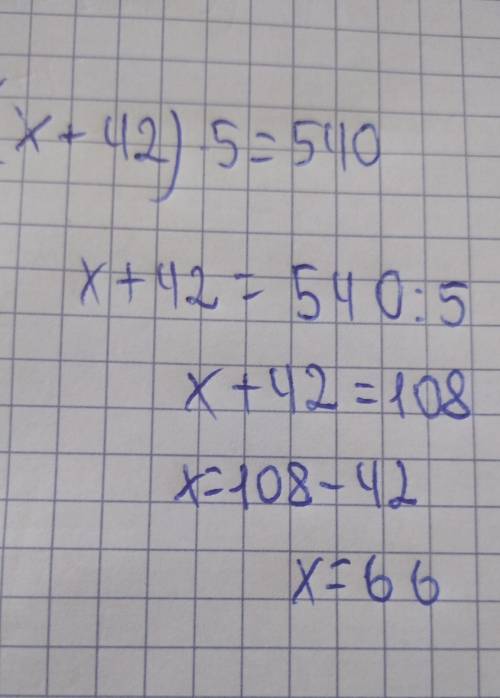 (x+42)·5=540
x+42=540:5
x+42=108
x=108-42
x=66